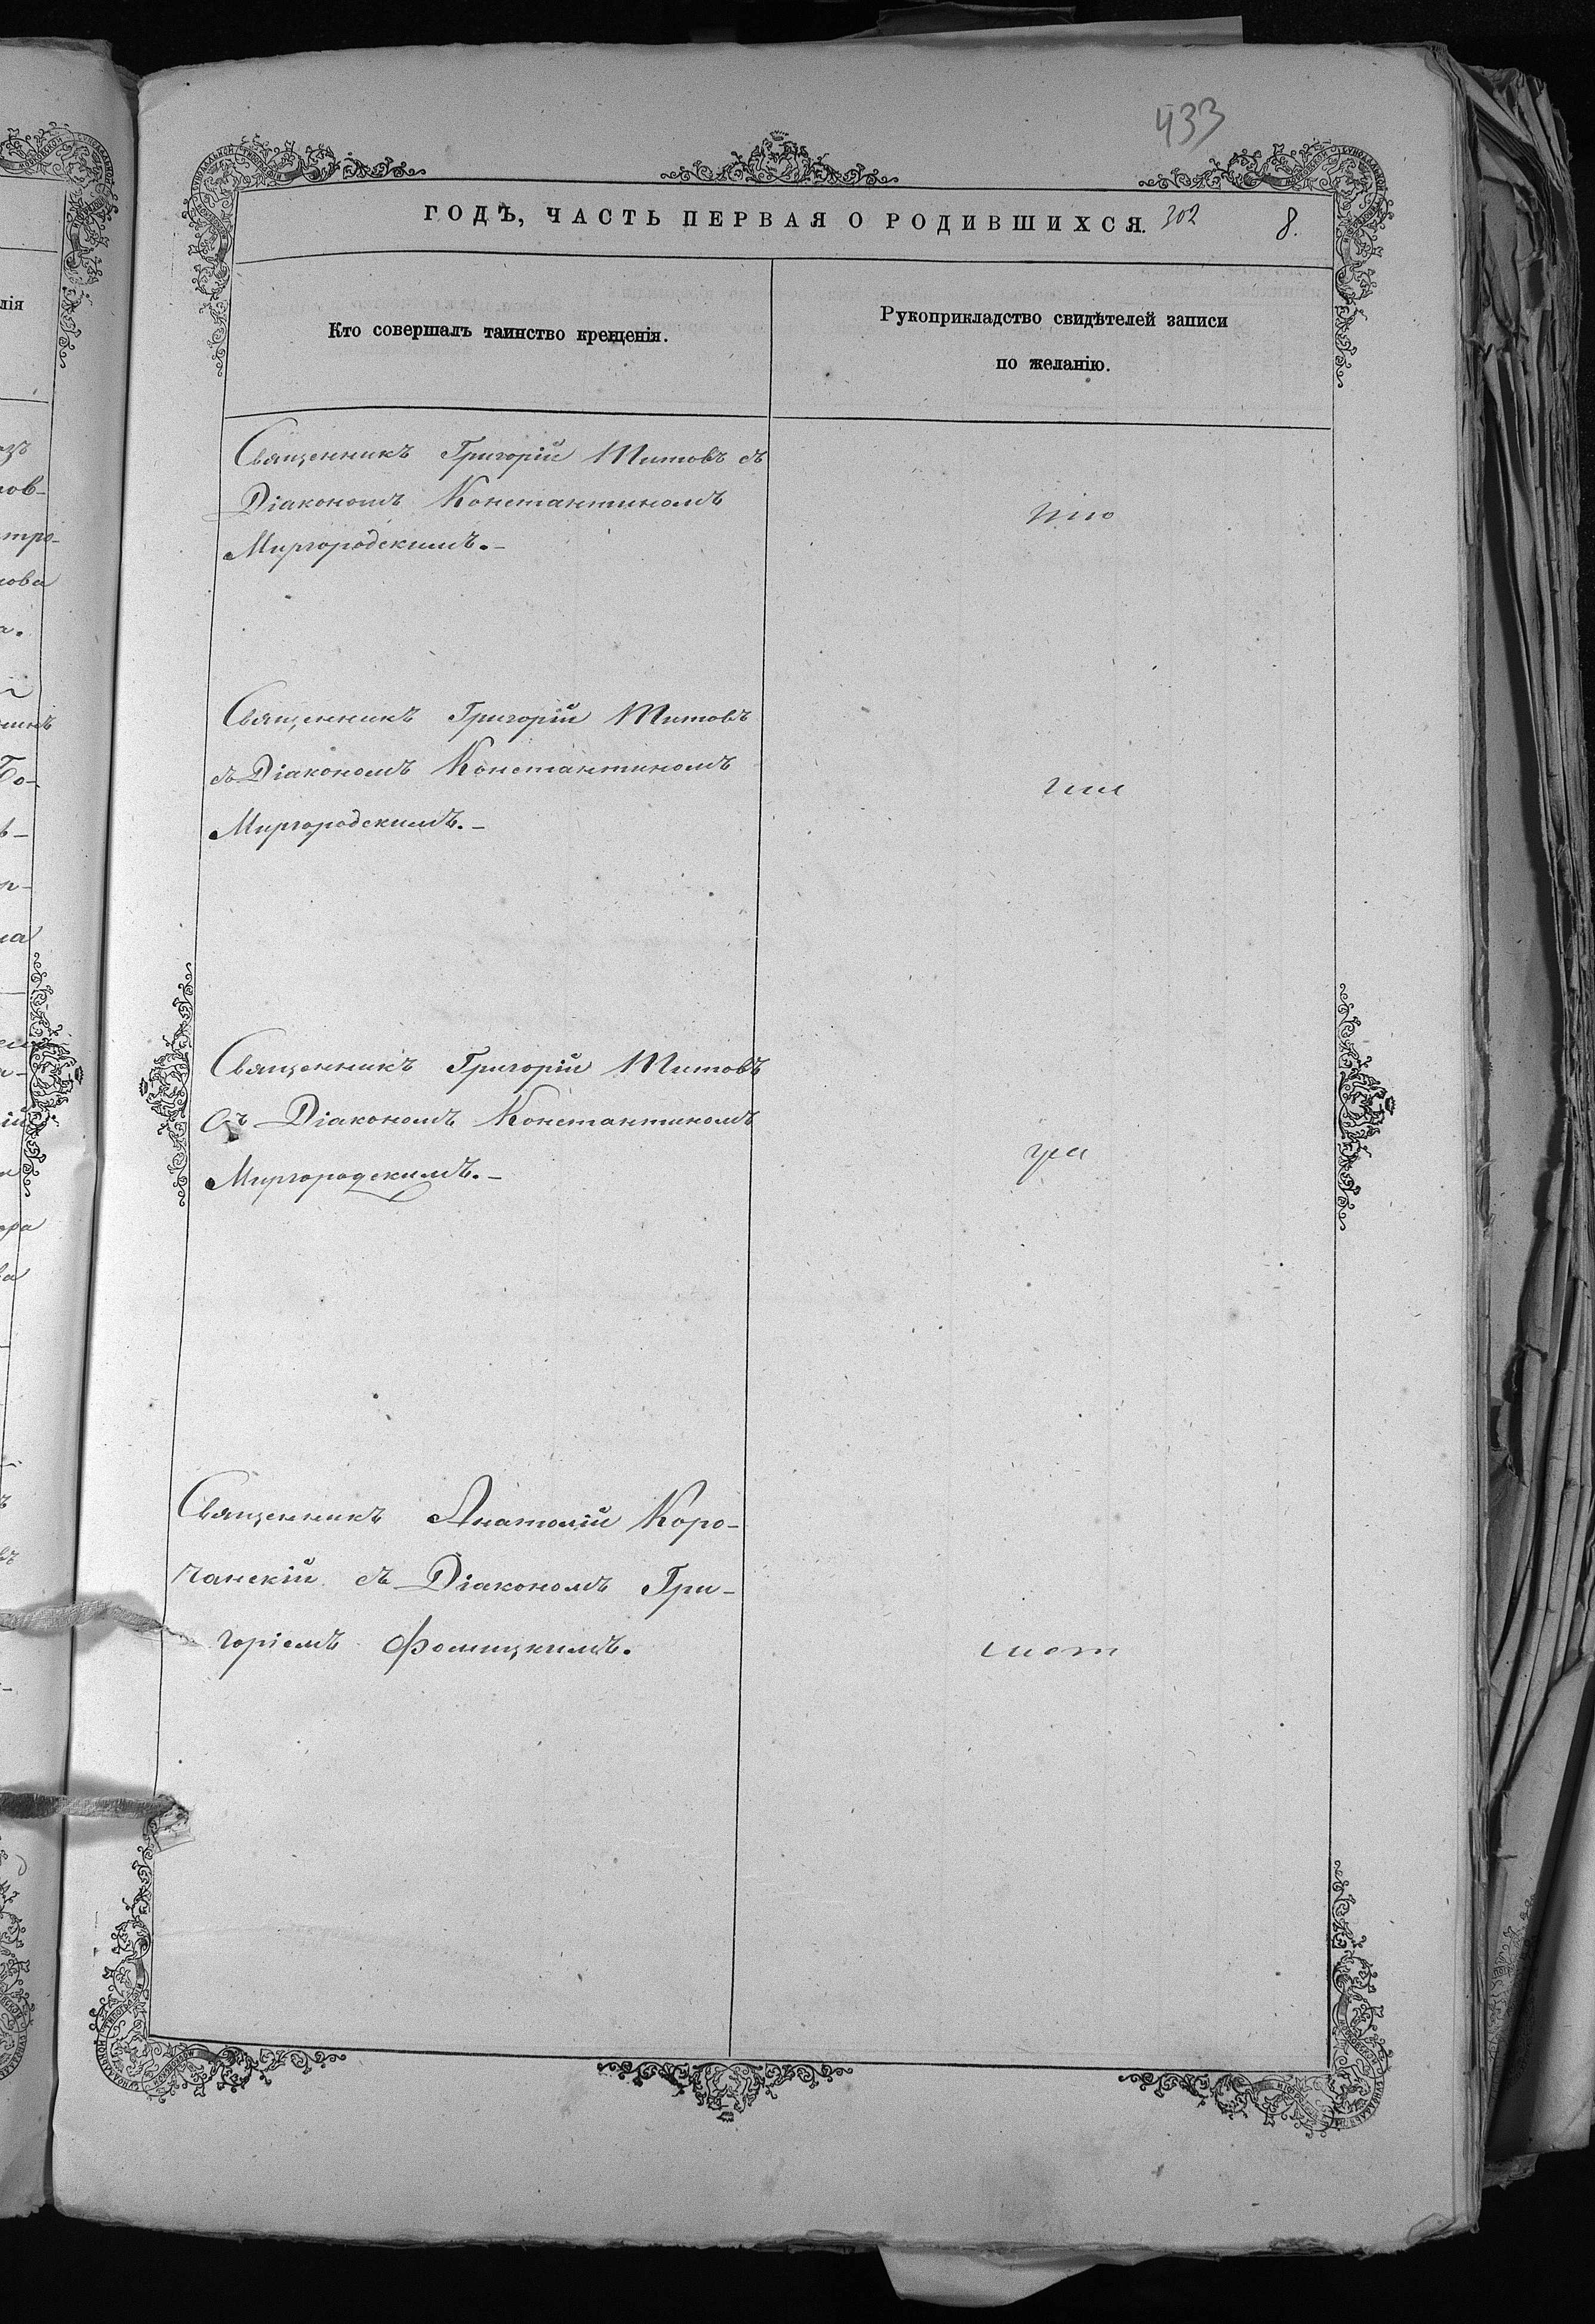 433
ГОДЪ, ЧАСТЬ ПЕРВАЯ О РОДИВШИХСЯ. 302 8.
Кто совершалъ таинство крещенія.
Рукоприкладство свидѣтелей записи
по желанію.
Священникъ Григорій Титовъ съ
Діакономъ Константиномъ
Миргородскимъ.-
Священникъ Григорій Титовъ
съ Діакономъ Константиномъ
Миргородскимъ.-
Священникъ Григорій Титовъ
Съ Діакономъ Константиномъ
Миргородскимъ.-
Священникъ Анатолій Коро-
чанскій съ Діакономъ Гри-
горіемъ Фомицкимъ.